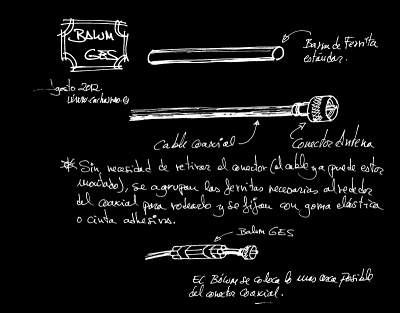 BALUM
GES
Agosto 2012
Barra de Ferrita
estándar.
Cable coaxial
Conector Antena
* Sin necesidad de retirar el conector (el cable ya puede estar
montado), se agrupan las ferritas necesarias alrededor
del coaxial para rodearlo y se fijan con goma elástica
o cinta adhesiva.
Balum GES
El Bálum se coloca lo mas cerca posible
del conector coaxial.